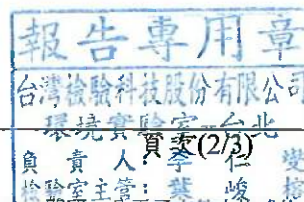 報告專用章
台灣檢驗科技股份有限公司
環境實驗室－台北
頁次(2/3)
負責人：李仁燮
檢驗室主管：葉峻